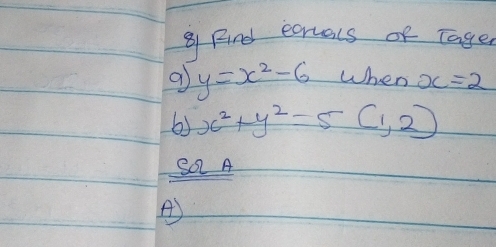 8) Find equals of Tagen
a) y = x² - 6 when x = 2
b) x² + y² = 5 (1, 2)
Sol A
A)